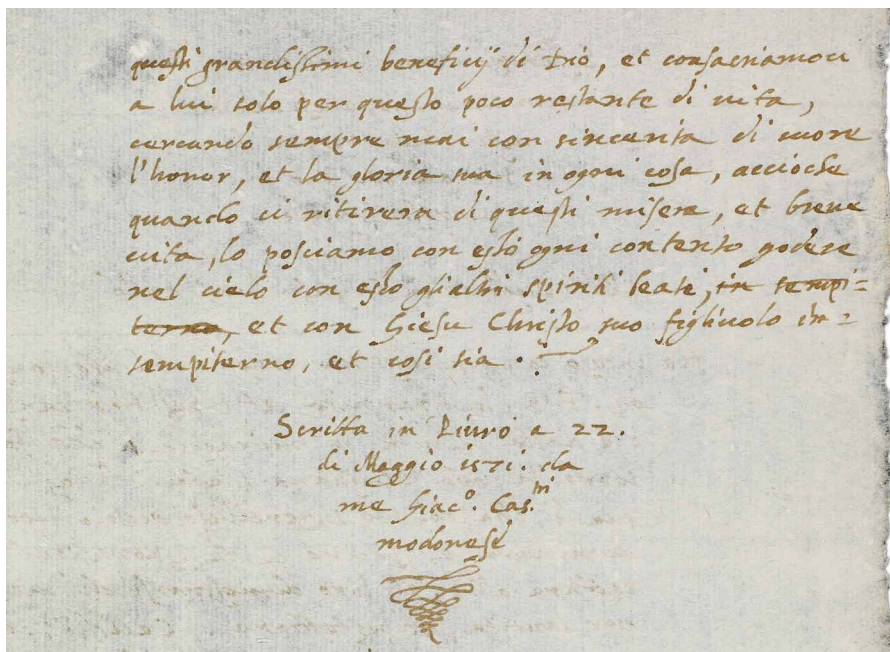 questi grandissimi beneficij di Dio, et consacriamoci
a lui solo per questo poco restante di vita,
cercando sempre mai con sincerita di cuore
l'honor, et la gloria sua in ogni cosa, accioche
quando ci ritirera di questi misera, et breve
vita, lo possiamo con esso ogni contento godere
nel cielo con esso gli altri spiriti beati, in sempi=
terno, et con Giesu Christo suo figlivolo in=
sempiterno, et cosi sia.
Scritta in Piuro a 22.
di Maggio 1571. da
me Giac°. Cas.tri
modonese